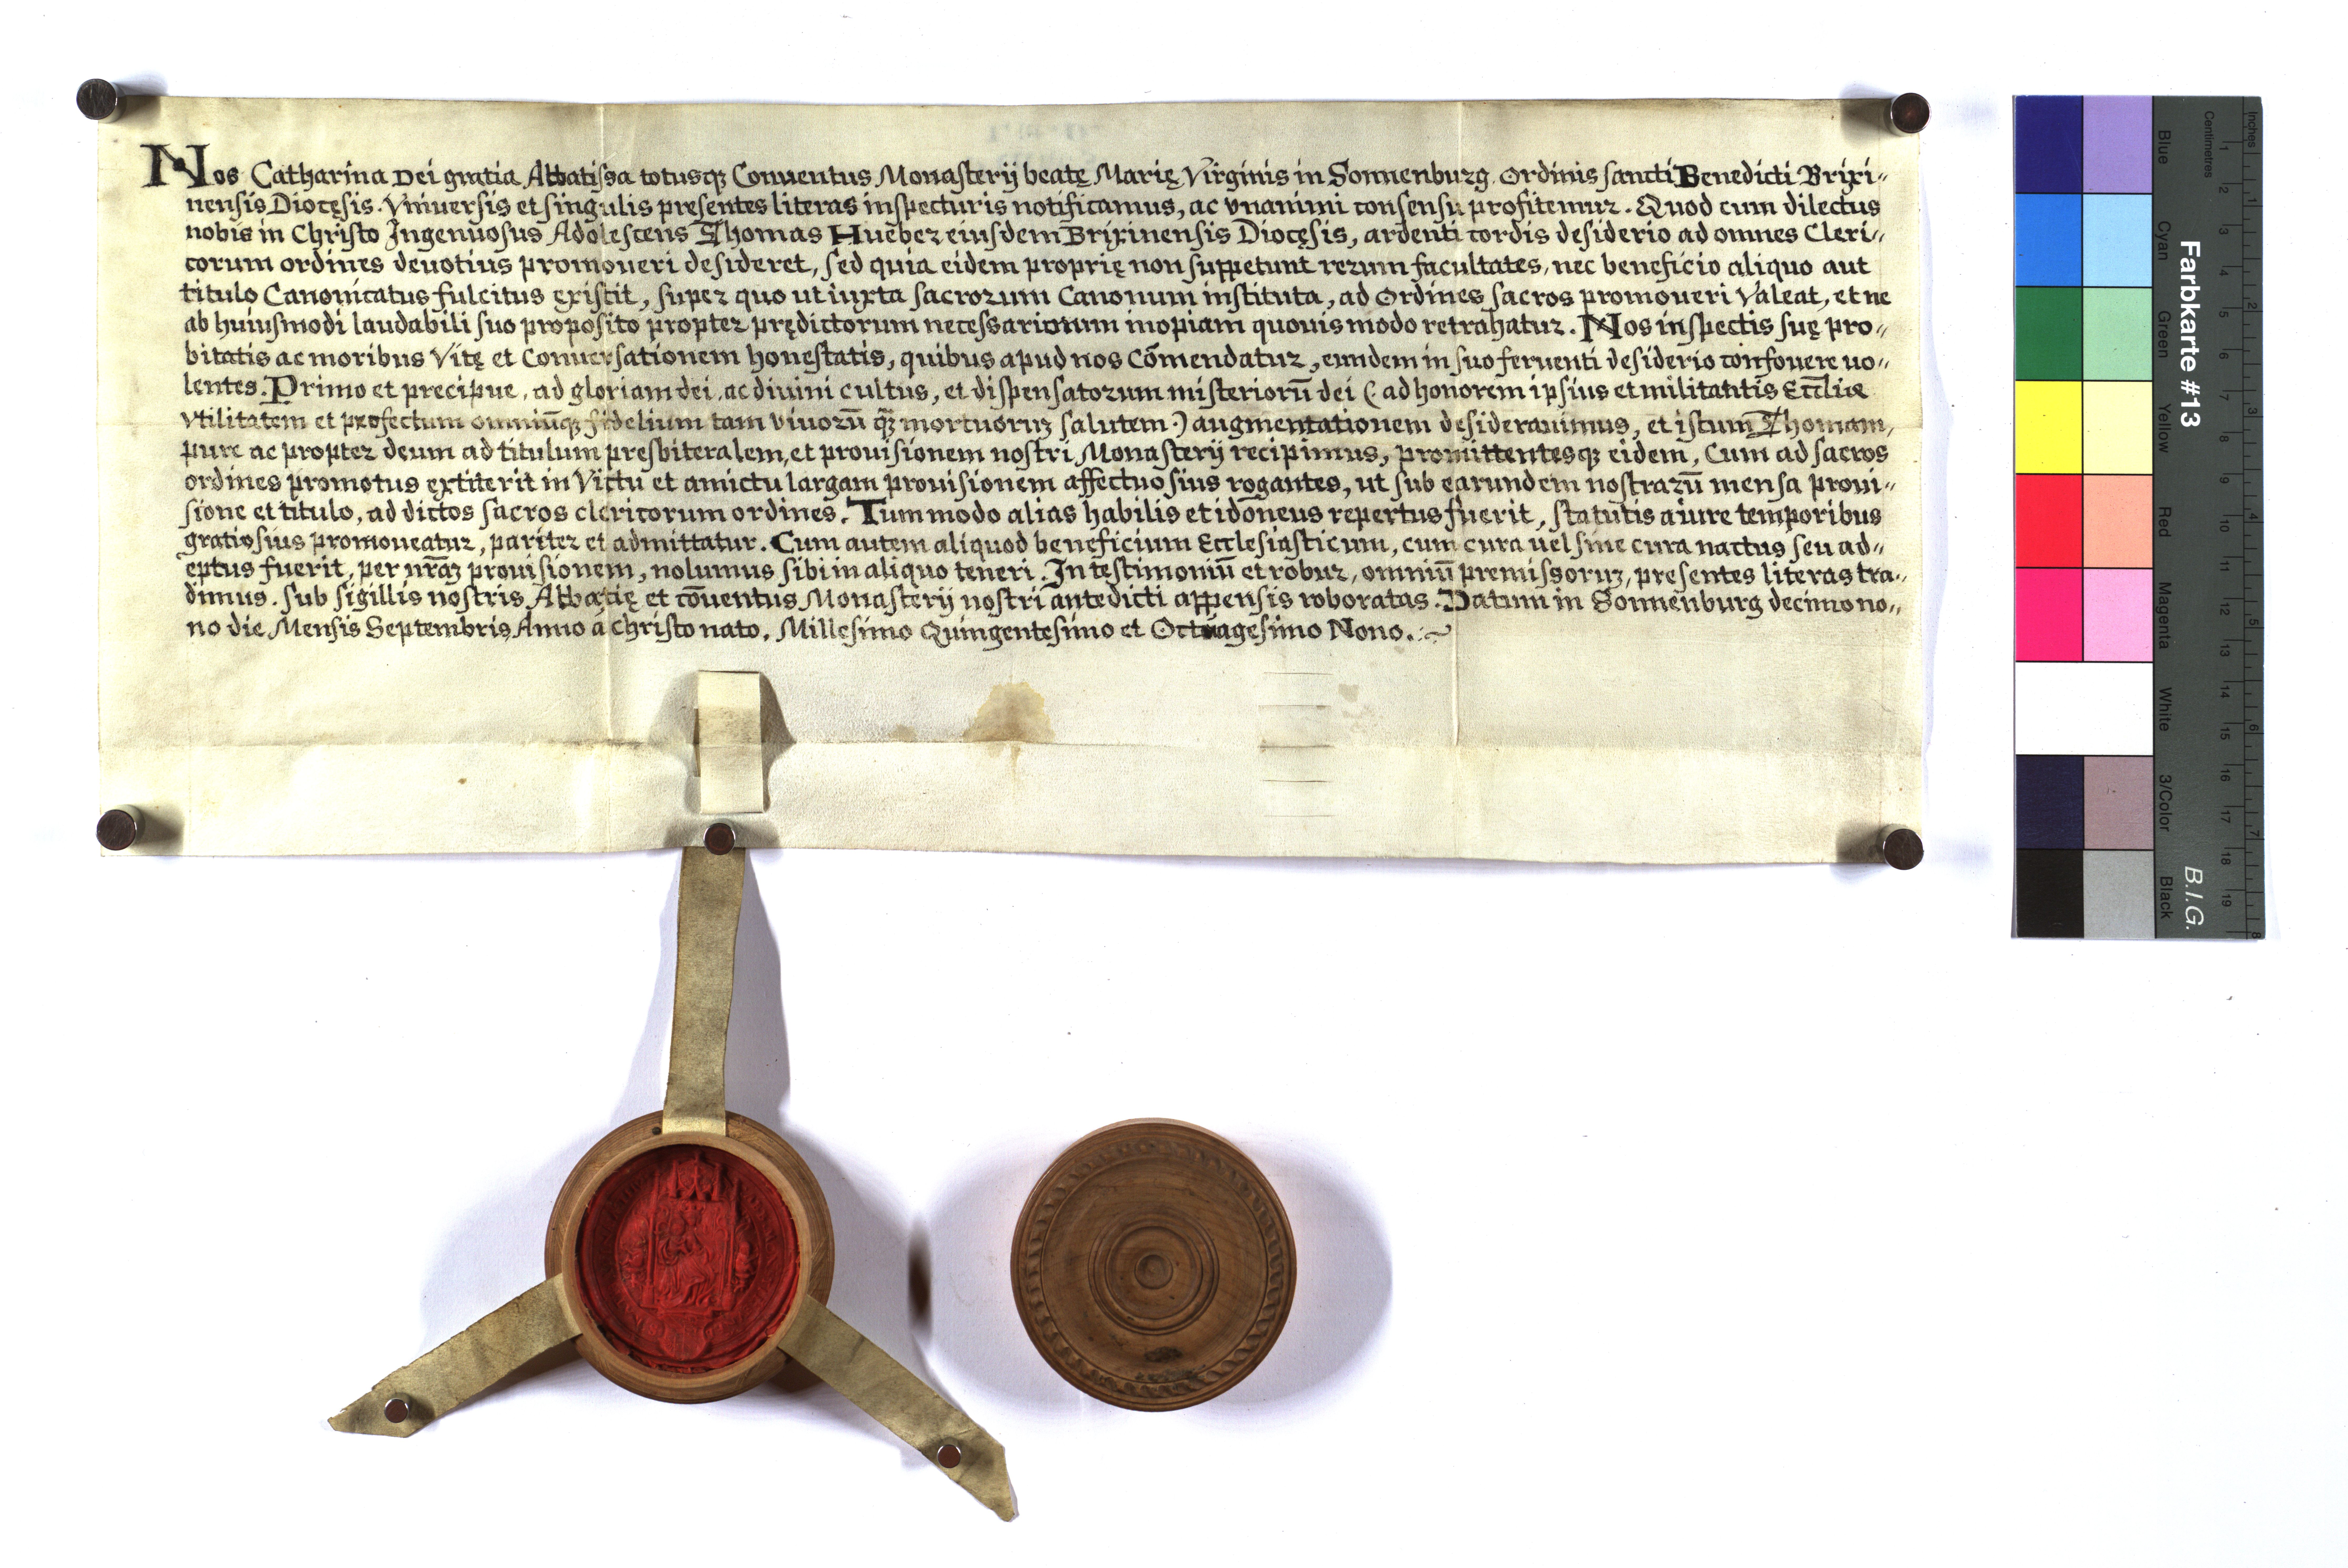 Nos Catharina Dei gratia Abbatissa totusqȝ Conuentus Monasterij beatę Marię Virginis in Sonnenburg Ordinis sancti Benedicti Brixi„
nensis Diocęsis. Vniuersis et singulis presentes literas inspecturis notificamus, ac vnanimi consensu profitemur. Quod cum dilectus
nobis in Christo Ingenuosus Adolescens Thomas Huēber eiusdem Brixinensis Diocęsis, ardenti cordis desiderio ad omnes Cleri„
corum ordines deuotius promoueri desideret, sed quia eidem proprię non suppetunt rerum facultates, nec beneficio aliquo aut
titulo Canonicatus fulcitus existit, super quo ut iuxta sacrorum Canonum instituta, ad Ordines sacros promoueri Valeat, et ne
ab huiusmodi laudabili suo proposito propter prędictorum necessariorum inopiam quouis modo retrahatur. Nos inspectis suę pro„
bitatis ac moribus Vitę et Conuersationem honestatis, quibus apud nos Cōmendatur, eundem in suo feruenti desiderio confouere uo„
lentes. Primo et precipue, ad gloriam dei, ac diuini cultus, et dispensatorum misteriorū dei ( ad honorem ipsius et militantis Eccl̄iæ
vtilitatem et profectum omniūqȝ fidelium tam viuorū qȝ̄ mortuorūȝ salutem ) augmentationem desiderauimus, et istum Thomam,
pure ac propter deum ad titulum presbiteralem, et prouisionem nostri Monasterij recipimus, promittentesqȝ eidem, Cum ad sacros
ordines promotus extiterit in Victu et amictu largam prouisionem affectuosius rogantes, ut sub earundem nostrarū mensa proui„
sione et titulo, ad dictos sacros clericorum ordines. Tum modo alias habilis et idoneus repertus fuerit, statutis a iure temporibus
gratiosius promoueatur, pariter et admittatur. Cum autem aliquod beneficium Ecclesiasticum, cum cura uel sine cura nactus seu ad„
eptus fuerit, per nr̄aȝ prouisionem, nolumus sibi in aliquo teneri. In testimoniū et robur, omniū premissoruȝ, presentes literas tra„
dimus. sub sigillis nostris Abbacię et cōuentus Monasterij nostri antedicti appensis roboratas. Datum in Sonnenburg decimo no„
no die Mensis Septembris Anno a Christo nato, Millesimo Quingentesimo et Octuagesimo Nono.
Farbkarte #13
B.I.G.
Centimetres
Inches
Blue
Cyan
Green
Yellow
Red
Magenta
White
3/Color
Black
1 2 3 4 5 6 7 8 9 10 11 12 13 14 15 16 17 18 19
1 2 3 4 5 6 7 8